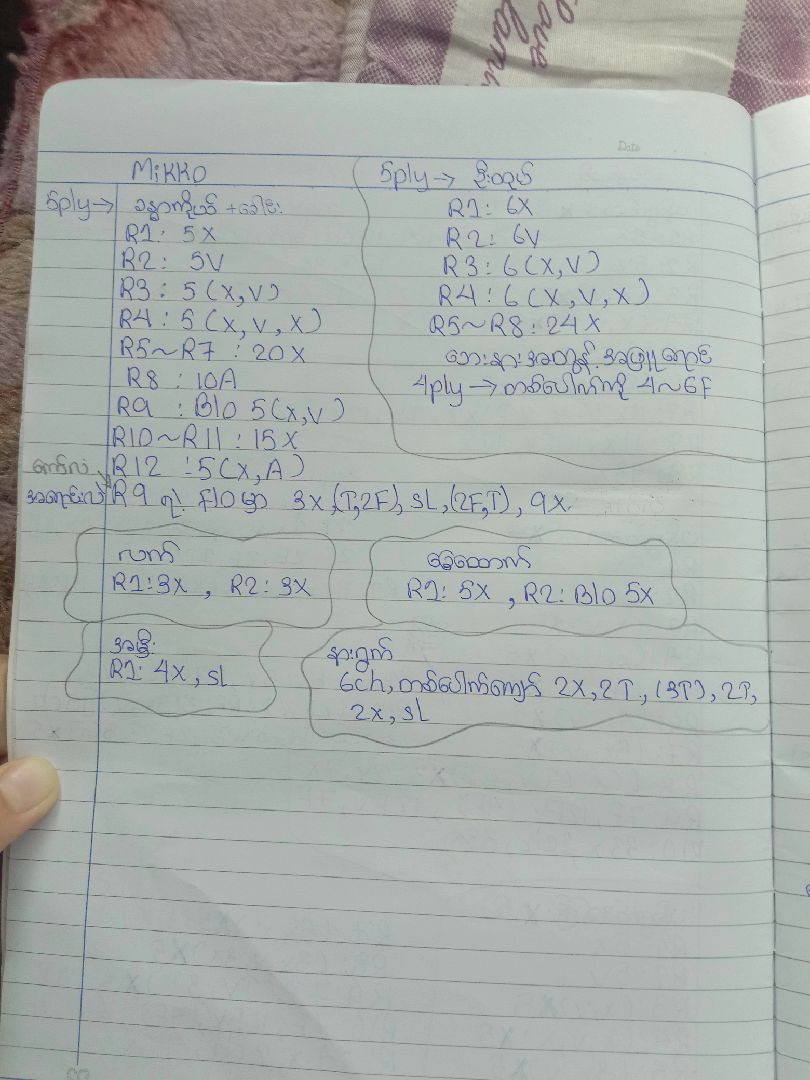 Love
Date
Mikko
5ply → ခန္ဓာကိုယ် + ခေါင်း
R1: 5X
R2: 5V
R3: 5(X,V)
R4: 5(X,V,X)
R5~R7: 20X
R8: 10A
R9: Blo 5(X,V)
R10~R11: 15X
R12: 5(X,A)
R9 ရဲ့ flo မှာ 3X,(T,2F), SL,(2F,T), 9X
5ply → ဦးထုပ်
R1: 6X
R2: 6V
R3: 6(X,V)
R4: 6(X,V,X)
R5~R8: 24X
4ply → တစ်ပေါက်ကို 4~6F
လက်
R1: 3X, R2: 3X
ခြေထောက်
R1: 5X, R2: Blo 5X
အမြီး
R1: 4X, SL
နားရွက်
6ch, တစ်ပေါက်ကျော် 2X, 2T, (3T), 2T,
2X, SL